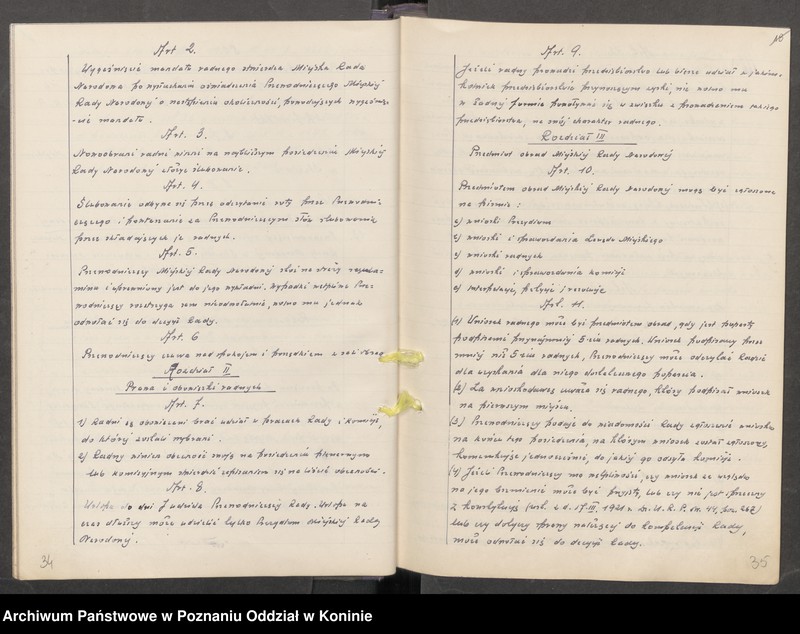 Art 2.
Wygaśnięcie mandatu radnego stwierdza Miejska Rada
Narodowa po wysłuchaniu oświadczenia Przewodniczącego Miejskiej
Rady Narodowej o nastąpieniu okoliczności, powodujących wygaśnię-
-cie mandatu.
Art. 3.
Nowoobrani radni winni na najbliższym posiedzeniu Miejskiej
Rady Narodowej złożyć ślubowanie.
Art. 4.
Ślubowanie odbywa się przez odczytanie roty przez Przewodni-
czącego i powtarzanie za Przewodniczącym słów ślubowania
przez składających je radnych.
Art. 5.
Przewodniczący Miejskiej Rady Narodowej stoi na straży regula-
minu i uprawniony jest do jego wykładni. Wypadki wątpliwe Prze-
wodniczący rozstrzyga sam nieodwołalnie, wolno mu jednak
odwołać się do decyzji Rady.
Art. 6
Przewodniczący czuwa nad spokojem i porządkiem w sali obrad
Rozdział II
Prawa i obowiązki radnych
Art. 7.
1) Radni są obowiązani brać udział w pracach Rady i Komisji,
do której zostali wybrani.
2) Radny winien obecność swoją na posiedzeniu plenarnym
lub komisyjnym stwierdzić wpisaniem się na liście obecności.
Art. 8.
Urlopu do dni 7 udziela Przewodniczący Rady. Urlopu na
czas dłuższy może udzielić tylko Prezydium Miejskiej Rady
Narodowej.
34
Art. 9.
Jeżeli radny prowadzi przedsiębiorstwo lub bierze udział w jakim-
kolwiek przedsiębiorstwie przynoszącym zyski, nie wolno mu
w żadnej formie powoływać się w związku z prowadzeniem takiego
przedsiębiorstwa, na swój charakter radnego.
Rozdział III
Przedmiot obrad Miejskiej Rady Narodowej
Art. 10.
Przedmiotem obrad Miejskiej Rady Narodowej mogą być zgłoszone
na piśmie:
a) wnioski Prezydium
b) wnioski i sprawozdania Zarządu Miejskiego
c) wnioski radnych
d) wnioski i sprawozdania komisji
e) interpelacje, petycje i rezolucje
Art. 11.
(1) Wniosek radnego może być przedmiotem obrad, gdy jest poparty
podpisami przynajmniej 5-ciu radnych. Wniosek podpisany przez
mniej niż 5-ciu radnych, Przewodniczący może odczytać Radzie
dla uzyskania dla niego dostatecznego poparcia.
(2) Za wnioskodawcę uważa się radnego, który podpisał wniosek
na pierwszym miejscu.
(3) Przewodniczący podaje do wiadomości Rady zgłoszenie wniosku
na końcu tego posiedzenia, na którym wniosek został zgłoszony,
komunikując jednocześnie, do jakiej go odsyła komisji.
(4) Jeżeli Przewodniczący ma wątpliwości, czy wniosek ze względu
na jego brzmienie może być przyjęty, lub czy nie jest sprzeczny
z konstytucją (ust. z d. 17.III. 1921 r. Dz. U. R. P. Nr. 44, poz. 267)
lub czy dotyczy sprawy należącej do kompetencji Rady,
może odwołać się do decyzji Rady.
35
Archiwum Państwowe w Poznaniu Oddział w Koninie